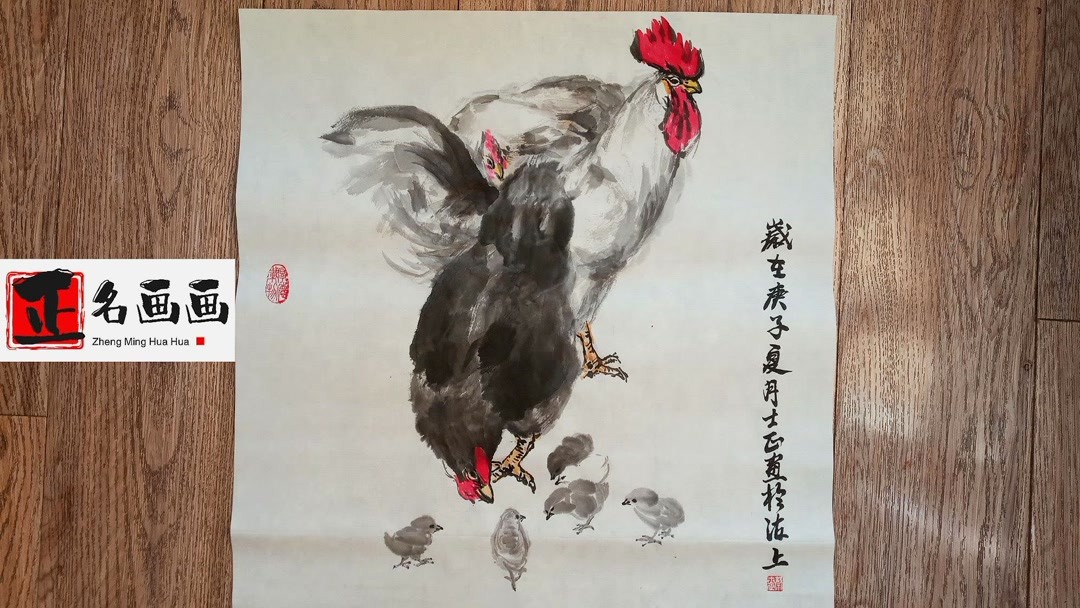 正名画画
Zheng Ming Hua Hua
歲在庚子夏月士正畫於海上